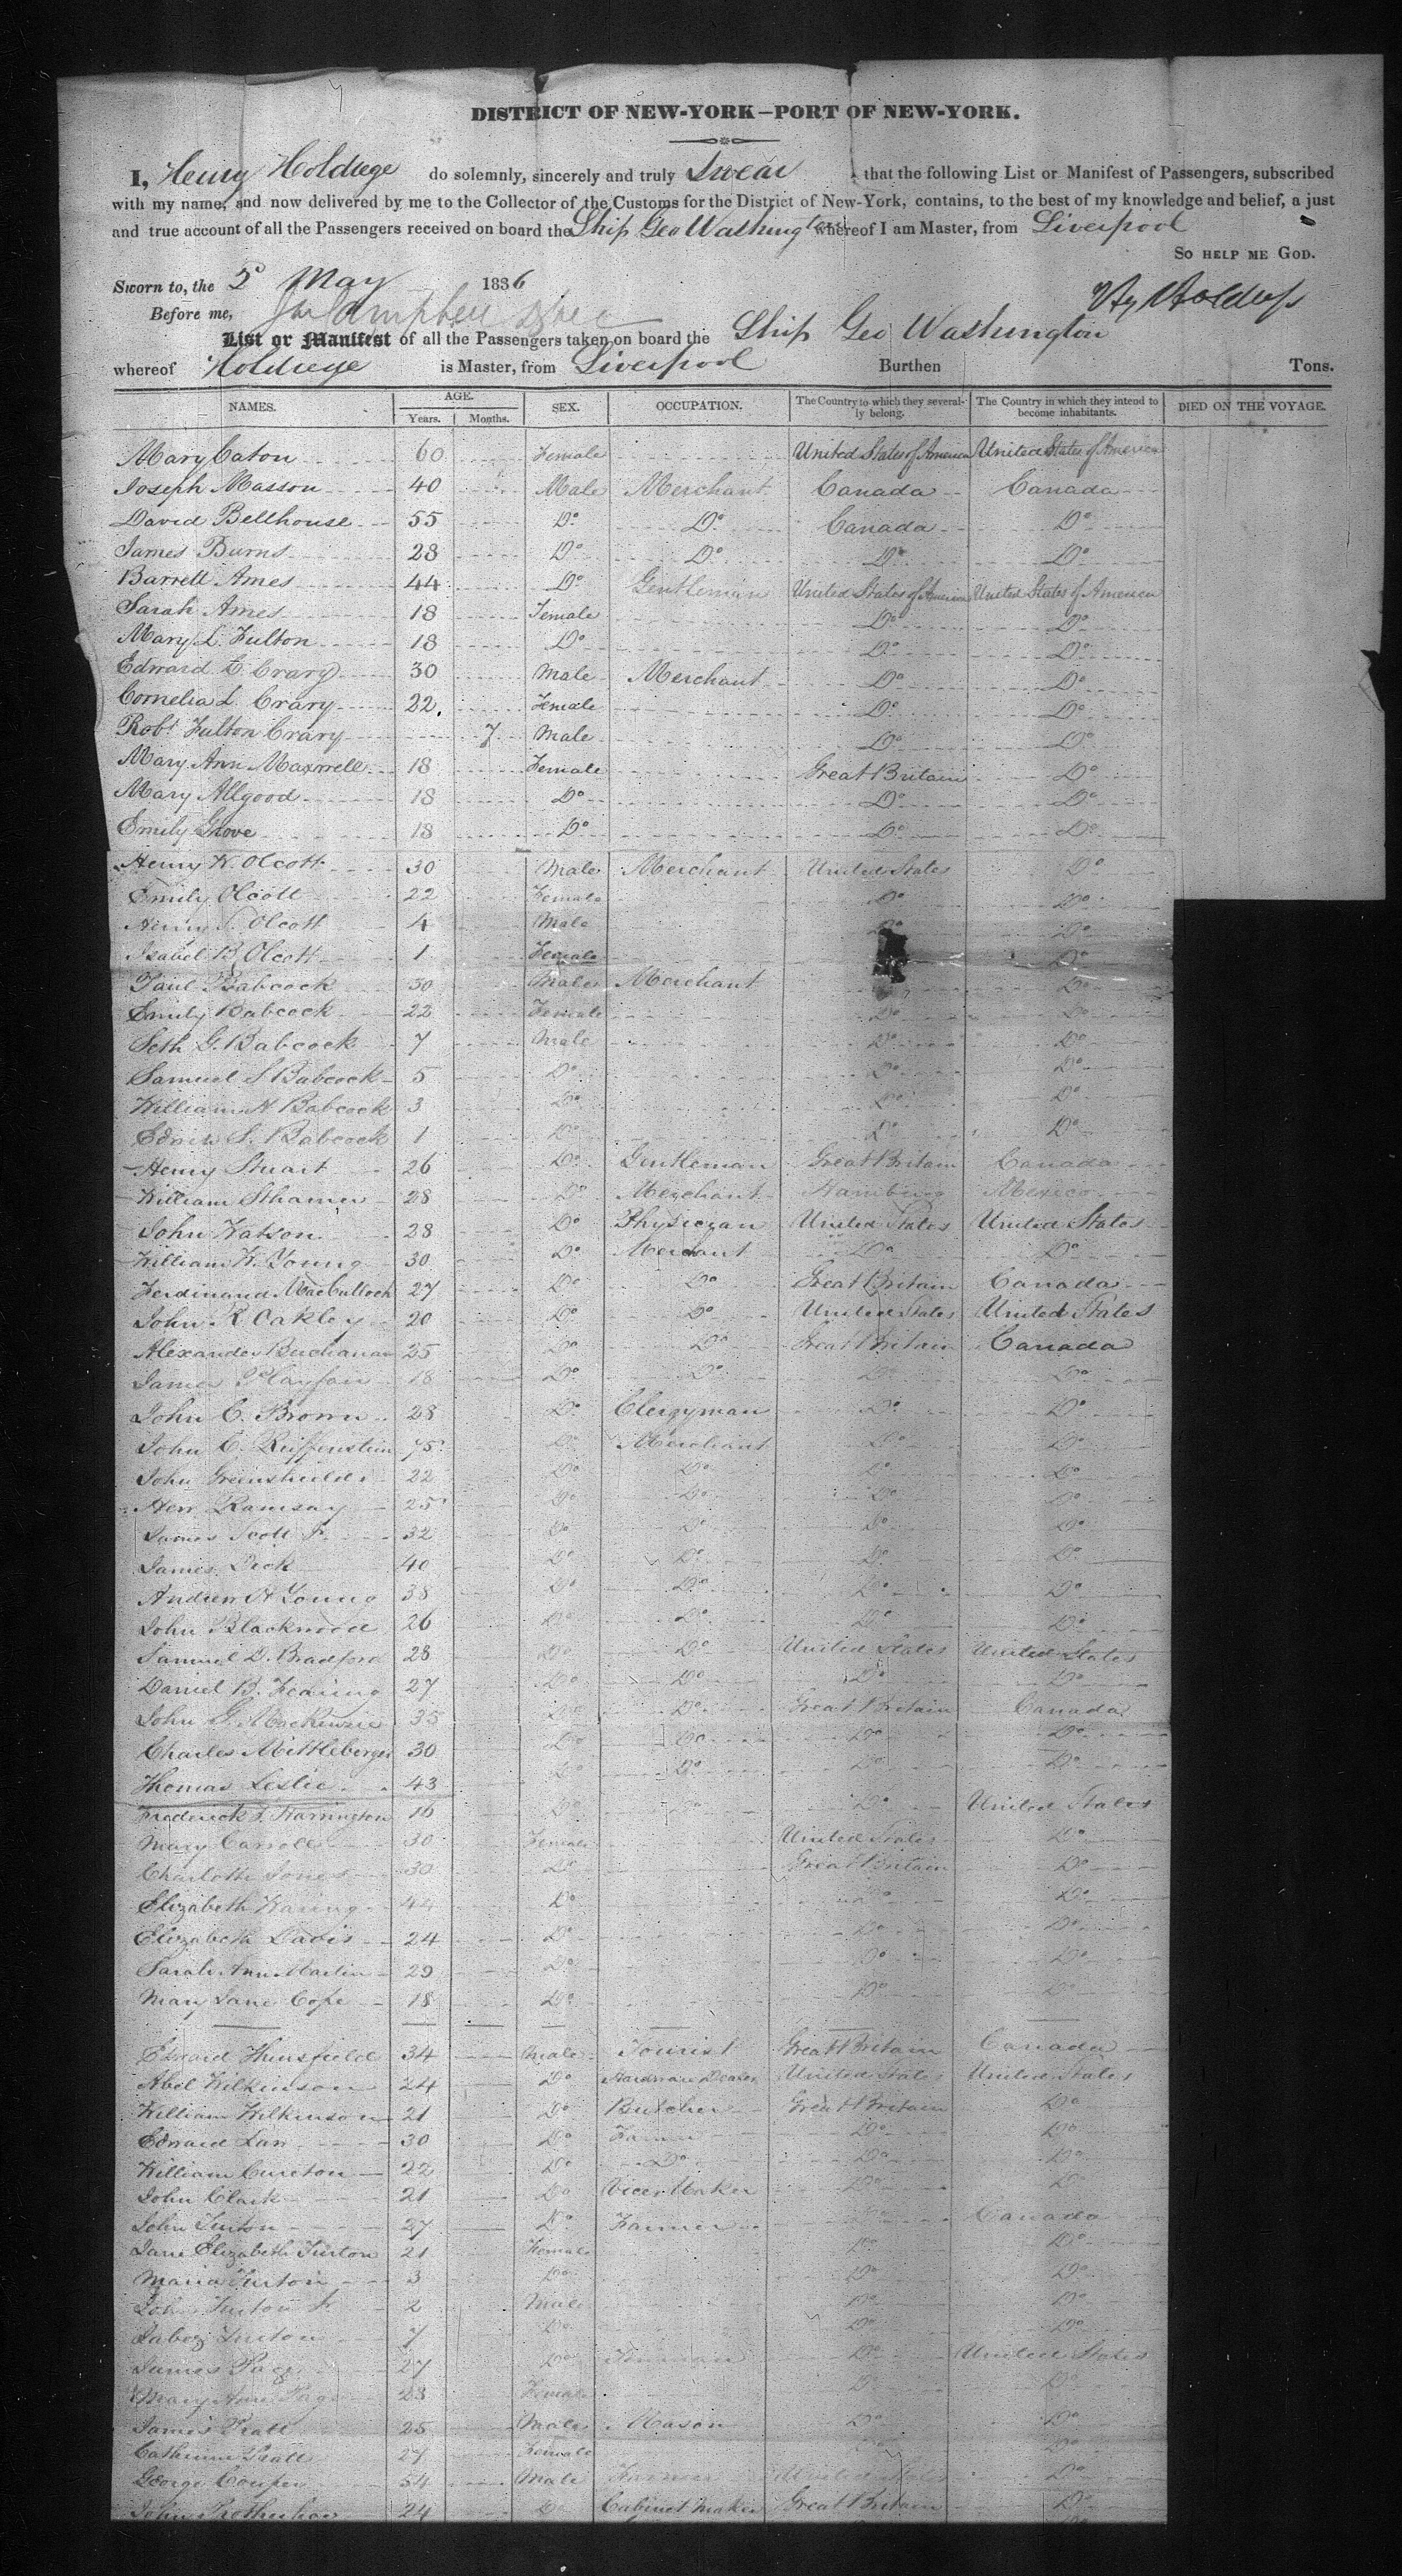 DISTRICT OF NEW-YORK—PORT OF NEW-YORK.
I, Henry Holdrege do solemnly, sincerely and truly Swear that the following List or Manifest of Passengers, subscribed
with my name, and now delivered by me to the Collector of the Customs for the District of New-York, contains, to the best of my knowledge and belief, a just
and true account of all the Passengers received on board the Ship Geo Washington whereof I am Master, from Liverpool
SO HELP ME GOD.
Sworn to, the 2d May 1836
Hy Holdrege
Before me,
List or Manifest of all the Passengers taken on board the Ship Geo Washington
whereof Holdrege is Master, from Liverpool Burthen Tons.
NAMES. AGE. Years. Months. SEX. OCCUPATION. The Country to which they severally belong. The Country in which they intend to become inhabitants. DIED ON THE VOYAGE.
Mary Caton 60 Female United States of America United States of America
Joseph Masson 40 Male Merchant Canada Canada
David Bellhouse 55 Do Do Canada Do
James Burns 28 Do Do Do Do
Barrell Ames 44 Do Gentleman United States of America United States of America
Sarah Ames 18 Female Do Do
Mary L. Fulton 18 Do Do Do
Edward C. Crary 30 Male Merchant Do Do
Cornelia L. Crary 22 Female Do Do
Robt Fulton Crary 7 Male Do Do
Mary Ann Maxwell 18 Female Great Britain Do
Mary Allgood 18 Do Do Do
Emily Grove 18 Do Do Do
Henry W. Olcott 30 Male Merchant United States Do
Emily Olcott 22 Female Do Do
Henry S. Olcott 4 Male Do Do
Isabel B Olcott 1 Female Do
Paul Babcock 30 Male Merchant Do
Emily Babcock 22 Female Do Do
Seth G. Babcock 7 Male Do Do
Samuel S Babcock 5 Do Do Do
William H Babcock 3 Do Do Do
Edwin S. Babcock 1 Do Do Do
Henry Stuart 26 Do Gentleman Great Britain Canada
William Sthamer 28 Do Merchant Hamburg Mexico
John Watson 28 Do Physician United States United States
William W. Young 30 Do Merchant Do Do
Ferdinand MacCulloch 27 Do Do Great Britain Canada
John R Oakley 20 Do Do United States United States
Alexander Buchanan 25 Do Do Great Britain Canada
James Playfair 18 Do Do Do Do
John C. Brown 28 Do Clergyman Do Do
John C. Reiffenstein 75 Do Merchant Do Do
John Greenshields 22 Do Do Do Do
Hew Ramsay 25 Do Do Do Do
James Scott Jr 32 Do Do Do Do
James Dick 40 Do Do Do Do
Andrew H Young 38 Do Do Do Do
John Blackwood 26 Do Do Do Do
Samuel D. Bradford 28 Do Do United States United States
Daniel B. Fearing 27 Do Do Do Do
John G. MacKenzie 35 Do Do Great Britain Canada
Charles Mittleberger 30 Do Do Do Do
Thomas Leslie 43 Do Do Do Do
Frederick S. Warrington 16 Do Do United States
Mary Carroll 30 Female United States Do
Charlotte Jones 30 Do Great Britain Do
Elizabeth Waring 44 Do Do Do
Elizabeth Davis 24 Do Do Do
Sarah Ann Martin 29 Do Do Do
Mary Jane Cope 18 Do Do Do
Edward Hunsfield 34 Male Tourist Great Britain Canada
Abel Wilkinson 24 Do Hardware Dealer United States United States
William Wilkinson 21 Do Butcher Great Britain Do
Edward Law 30 Do Farmer Do Do
William Cureton 22 Do Do Do Do
John Clark 21 Do Vice Maker Do Do
John Turton 27 Do Farmer Canada
Jane Elizabeth Turton 21 Female Do Do
Maria Turton 3 Do Do Do
John Turton Jr 2 Male Do Do
Jabez Turton 7 Do Do Do
James Page 27 Do Do United States
Mary Ann Page 23 Female Do Do
James Pratt 25 Male Mason Do Do
Catherine Pratt 27 Female Do
George Couper 54 Male Farmer United States Do
John Rotherham 24 Do Cabinet Maker Great Britain Do